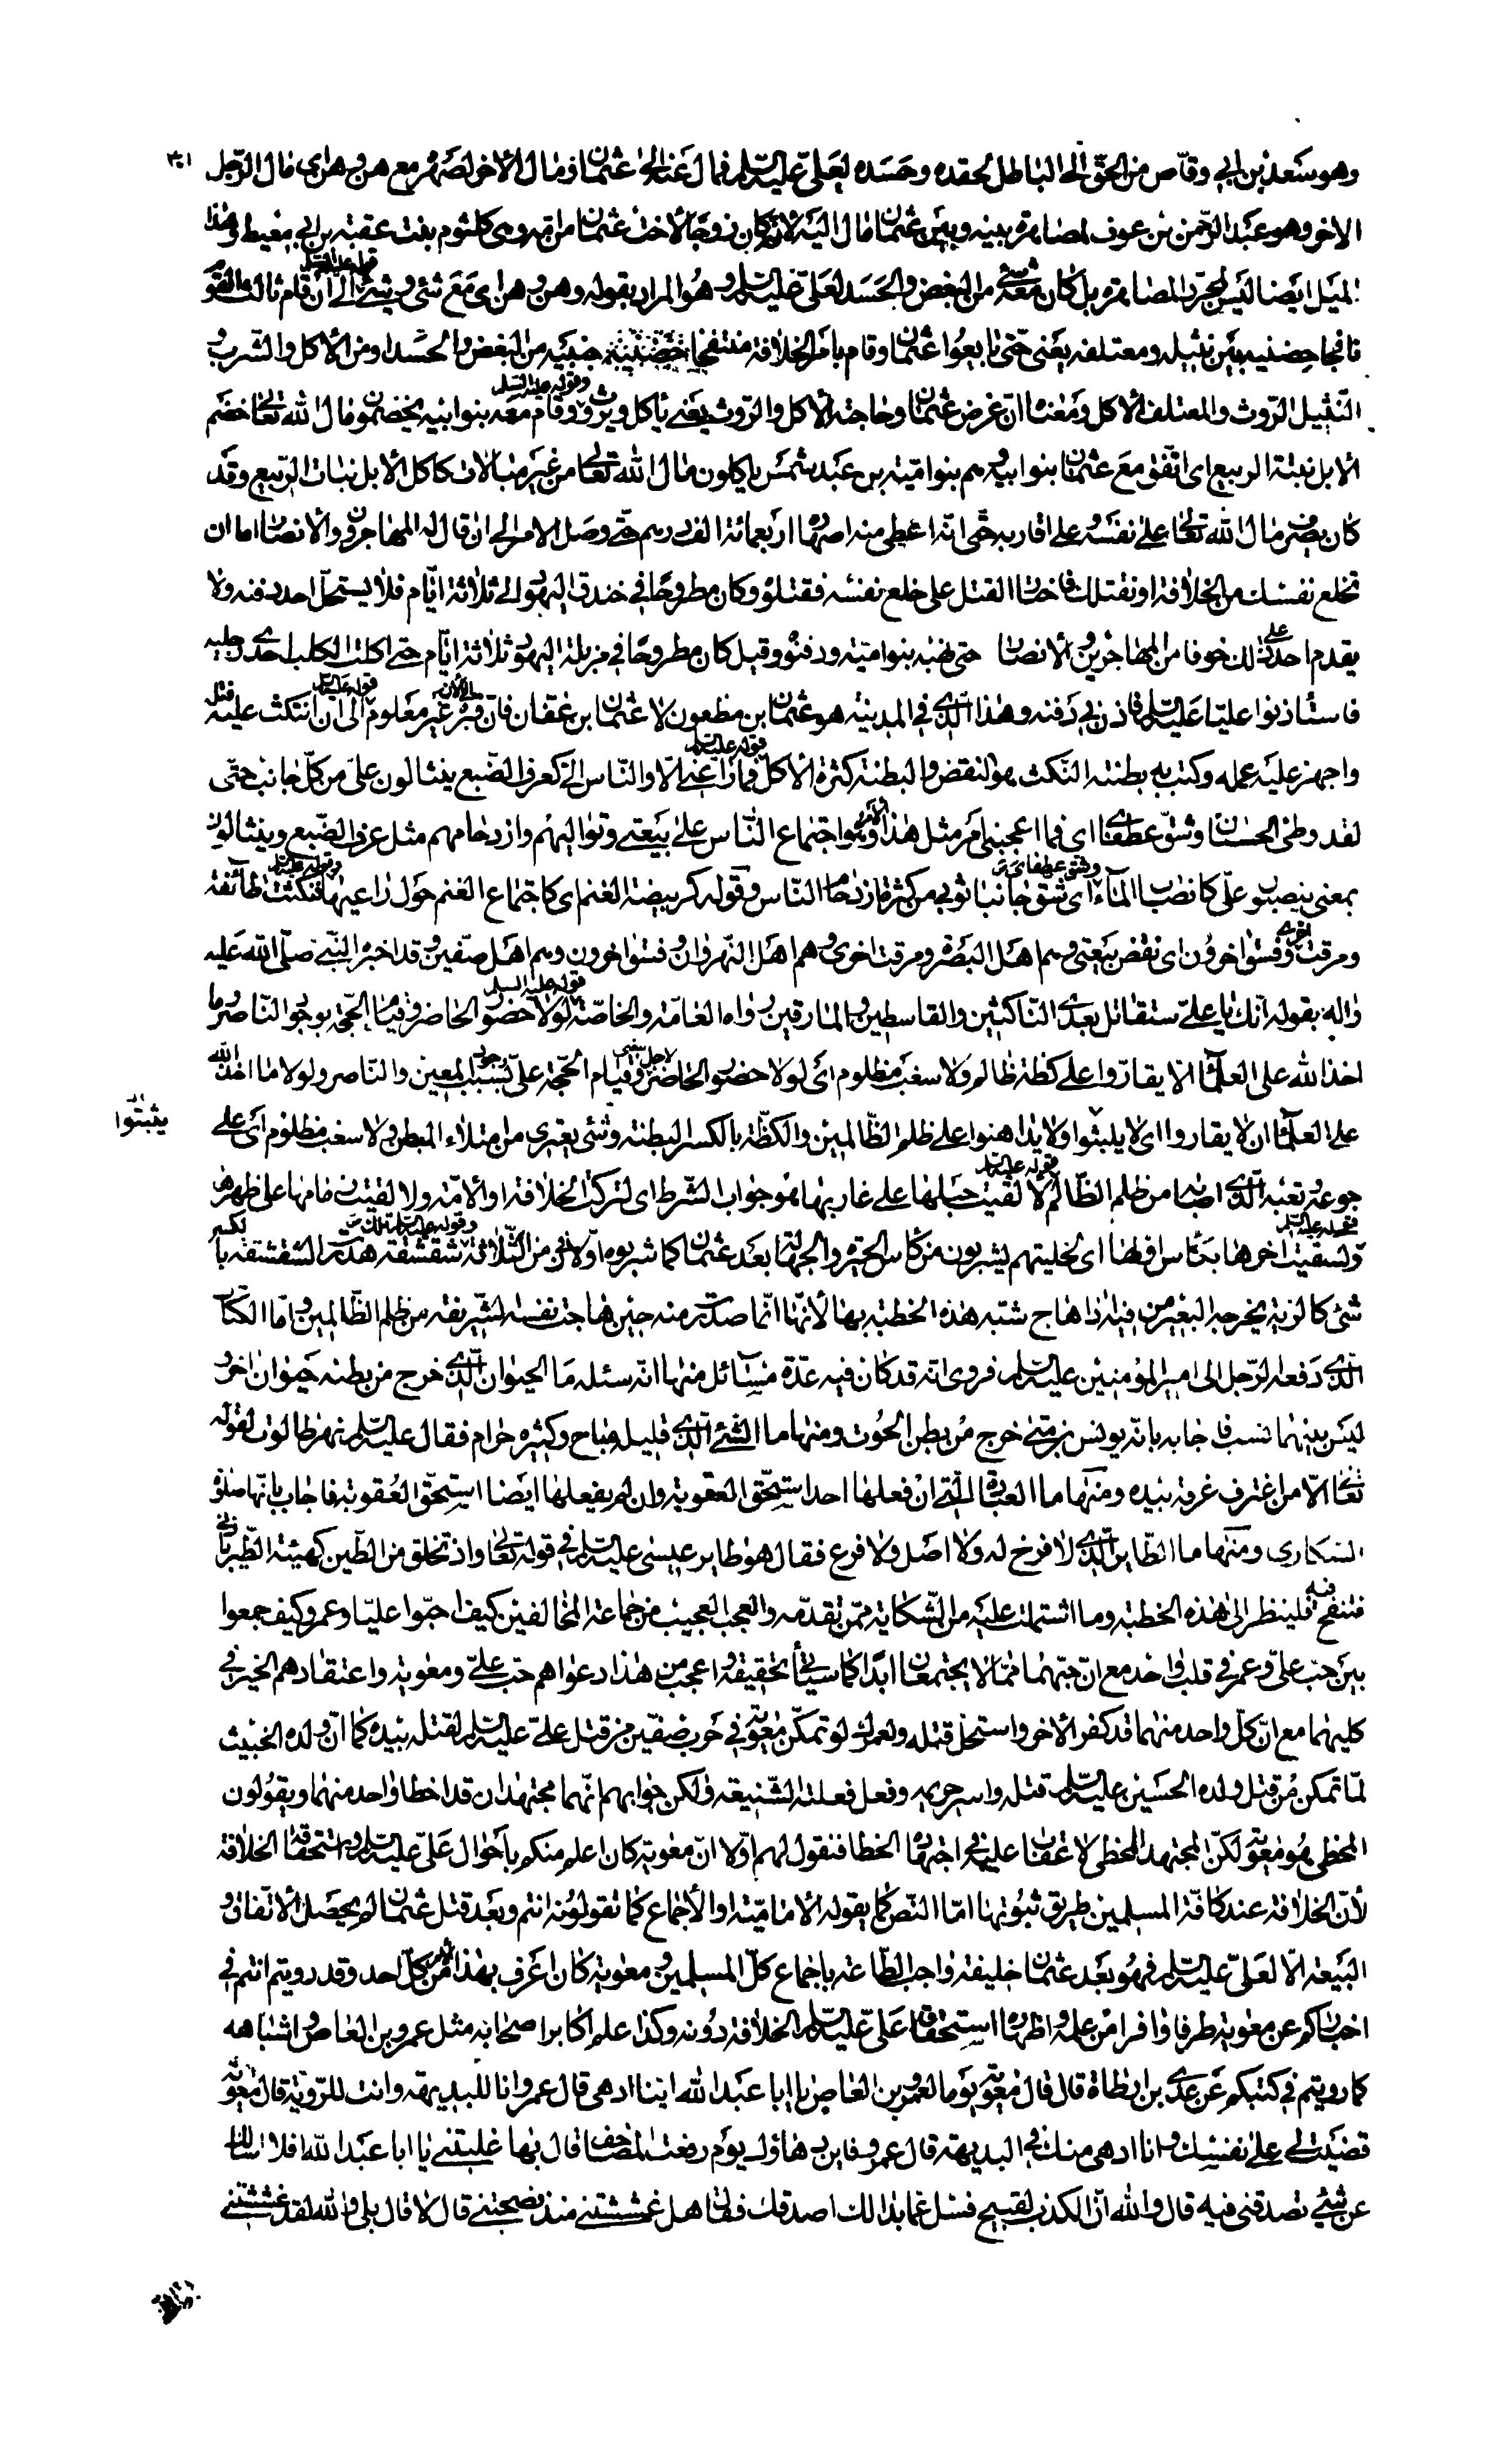 وهو سعد بن ابي وقاص من الحق الى الباطل لحقده وحسده لعلي عليه السلام فمال عنه الى عثمان ومال الاخر لصهره مع هن وهن اى مال الرجل
الاخر وهو عبد الرحمن بن عوف لمصاهرة بينه وبين عثمان مال اليه لانه كان زوجا لاخت عثمان من امه وهي كلثوم بنت عقبة بن ابي معيط وهذا
الميل ايضا ليس لمجرد المصاهرة بل كان معه شئ من البغض والحسد لعلي عليه السلام وهو المراد بقوله وهن وهن اى مع شئ وشئ قوله عليه السلام الى ان قام ثالث القوم
نافجا حضنيه بين نثيله ومعتلفه يعني حتى بايعوا عثمان وقام بامر الخلافة منتفخا جنبيه من البغض والحسد او من الاكل والشرب و
النثيل الروث والمعتلف الاكل ومعناه ان غرض عثمان وحاجته الاكل والروث يعني ياكل ويروث وقوله عليه السلام وقام معه بنو ابيه يخضمون مال الله تعالى خضم
الابل نبتة الربيع اى اتفق مع عثمان بنو ابيه وهم بنو امية بن عبد شمس ياكلون مال الله تعالى من غير مبالات كاكل الابل نبات الربيع وقد
كان يصرف مال الله تعالى على نفسه وعلى اقاربه حتى انه اعطى منه اصهاره اربعمائة الف درهم حتى وصل الامر الى ان قال له المهاجرون والانصار اما ان
تخلع نفسك من الخلافة او نقتلك فاختار القتل على خلع نفسه فقتلوه وكان مطروحا في خندق اليهود الى ثلاثة ايام فلا يستحل احد دفنه ولا
يقدم احد على ذلك خوفا من المهاجرين والانصار حتى نهبه بنو امية ودفنوه وقيل كان مطروحا في مزبلة اليهود ثلاثة ايام حتى اكلت الكلاب احدى رجليه
فاستأذنوا عليا عليه السلام فاذن في دفنه وهذا الذي في المدينة هو عثمان بن مظعون لا عثمان بن عفان فان قبره غير معلوم الى الان قوله عليه السلام الى ان انتكث عليه فتله
واجهز عليه عمله وكبت به بطنته النكث هو النقض والبطنة كثرة الاكل قوله عليه السلام فما راعني الا والناس الي كعرف الضبع ينثالون علي من كل جانب حتى
لقد وطئ الحسنان وشق عطفاي اى فما اعجبني امر مثل هذا الامر وهو اجتماع الناس على بيعتي وتواليهم وازدحامهم مثل عرف الضبع وينثالون
بمعنى ينصبون علي كانصباب الماء وشق عطفاي اى شق جانبا ثوبي من كثرة ازدحام الناس وقوله كربيضة الغنم اى كاجتماع الغنم حول راعيها وقوله عليه السلام فنكثت طائفة
ومرقت اخرى وفسق اخرون اى نقض بيعتي وهم اهل البصرة ومرقت اخرى وهم اهل النهروان وفسق اخرون وهم اهل صفين وقد اخبر النبي صلى الله عليه
واله بقوله انك يا علي ستقاتل بعدي الناكثين والقاسطين والمارقين رواه العامة والخاصة قوله عليه السلام لولا حضور الحاضر وقيام الحجة بوجود الناصر وما
اخذ الله على العلماء الا يقاروا على كظة ظالم ولا سغب مظلوم اى لولا حضور الحاضر لاجل بيعتي وقيام الحجة علي بسبب وجود المعين والناصر ولولا ما اخذ الله
على العلماء ان لا يقاروا اى لا يلبثوا ولا يداهنوا على ظلم الظالمين والكظة بالكسر البطنة وشئ يعتري من امتلاء البطن ولا سغب مظلوم اى على
يثبتوا
جوعه وتعبه الذي اصابه من ظلم الظالم قوله عليه السلام لالقيت حبلها على غاربها هو جواب الشرط اى لتركت الخلافة او الامة ولالقيت زمامها على ظهرها
قوله عليه السلام ولسقيت اخرها بكاس اولها اى لخليتهم يشربون من كاس الحيرة والجهالة بعد عثمان كما شربوه اولا في زمن الثلاثة وقوله عليه السلام تلك شقشقة هدرت الشقشقة بالكسر
شئ كالرية يخرجه البعير من فيه اذا هاج شبه هذه الخطبة بها لانها انما صدرت منه حين هاجت نفسه الشريفة من ظلم الظالمين واما الكتاب
الذي دفعه الرجل الى امير المؤمنين عليه السلام فروى انه قد كان فيه عدة مسائل منها انه سئله ما الحيوان الذي خرج من بطنه حيوان اخر و
ليس بينهما نسب فاجابه بانه يونس بن متى خرج من بطن الحوت ومنها ما الشئ الذي قليله مباح وكثيره حرام فقال عليه السلام نهر طالوت لقوله
تعالى الا من اغترف غرفة بيده ومنها ما العبادة التي ان فعلها احد استحق العقوبة وان لم يفعلها ايضا استحق العقوبة فاجاب بانها صلوة
السكارى ومنها ما الطاير الذي لا فرخ له ولا اصل ولا فرع فقال هو طاير عيسى عليه السلام في قوله تعالى واذ تخلق من الطين كهيئة الطير باذني
فتنفخ فيه فلينظر الى هذه الخطبة وما اشتملت عليه من الشكاية ممن تقدمه والعجب العجيب من جماعة المخالفين كيف احبوا عليا وعمر وكيف جمعوا
بين حب علي وعمر في قلب واحد مع ان حبهما مما لا يجتمعان ابدا كما سيأتي تحقيقه واعجب من هذا دعواهم حب علي ومعوية واعتقادهم الخير في
كليهما مع ان كل واحد منهما قد كفر الاخر واستحل قتله ولعمرك لو تمكن معوية في حرب صفين من قتل علي عليه السلام لقتله بيده كما ان ولده الخبيث
لما تمكن من قتل ولده الحسين عليه السلام قتله واسر حريمه وفعل فعلته الشنيعة ولكن جوابهم انهما مجتهدان قد اخطا واحد منهما ويقولون
المخطي هو معوية لكن المجتهد المخطي لا عقاب عليه في اجتهاده الخطا فنقول لهم اولا ان معوية كان اعلم منكم باحوال علي عليه السلام واستحقاقه الخلافة
لان الخلافة عند كافة المسلمين طريق ثبوتها اما النص كما يقوله الامامية او الاجماع كما تقولونه انتم وبعد قتل عثمان لم يحصل الاتفاق و
البيعة الا لعلي عليه السلام فهو بعد عثمان خليفة واجب الطاعة باجماع كل المسلمين ومعوية كان اعرف بهذا الامر من كل احد وقد رويتم انتم في
اخباركم عن معوية طرفا وافرا من علمه واظهاره استحقاق علي عليه السلام الخلافة دونه وكذا علم اكابر اصحابه مثل عمرو بن العاص واشباهه
كما رويتم في كتبكم عن عدي بن ارطاة قال قال معوية يوما لعمرو بن العاص يا ابا عبد الله اينا ادهى قال عمرو انا للبديهة وانت للروية قال معوية
قضيت لي على نفسك وانا ادهى منك في البديهة قال عمرو فاين دهاؤك يوم رفعت المصاحف قال بها غلبتني يا ابا عبد الله افلا اسالك
عن شئ تصدقني فيه قال والله ان الكذب لقبيح فسل عما بدا لك اصدقك فقال هل غششتني منذ نصحتني قال لا قال بلى والله لقد غششتني